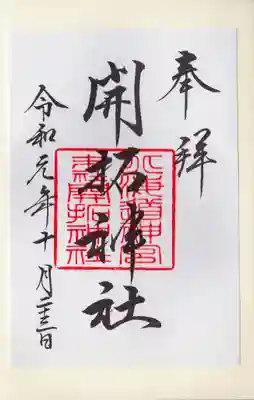 奉拝
開拓神社
令和元年十月二十三日
北海道神宮
末社開拓神社